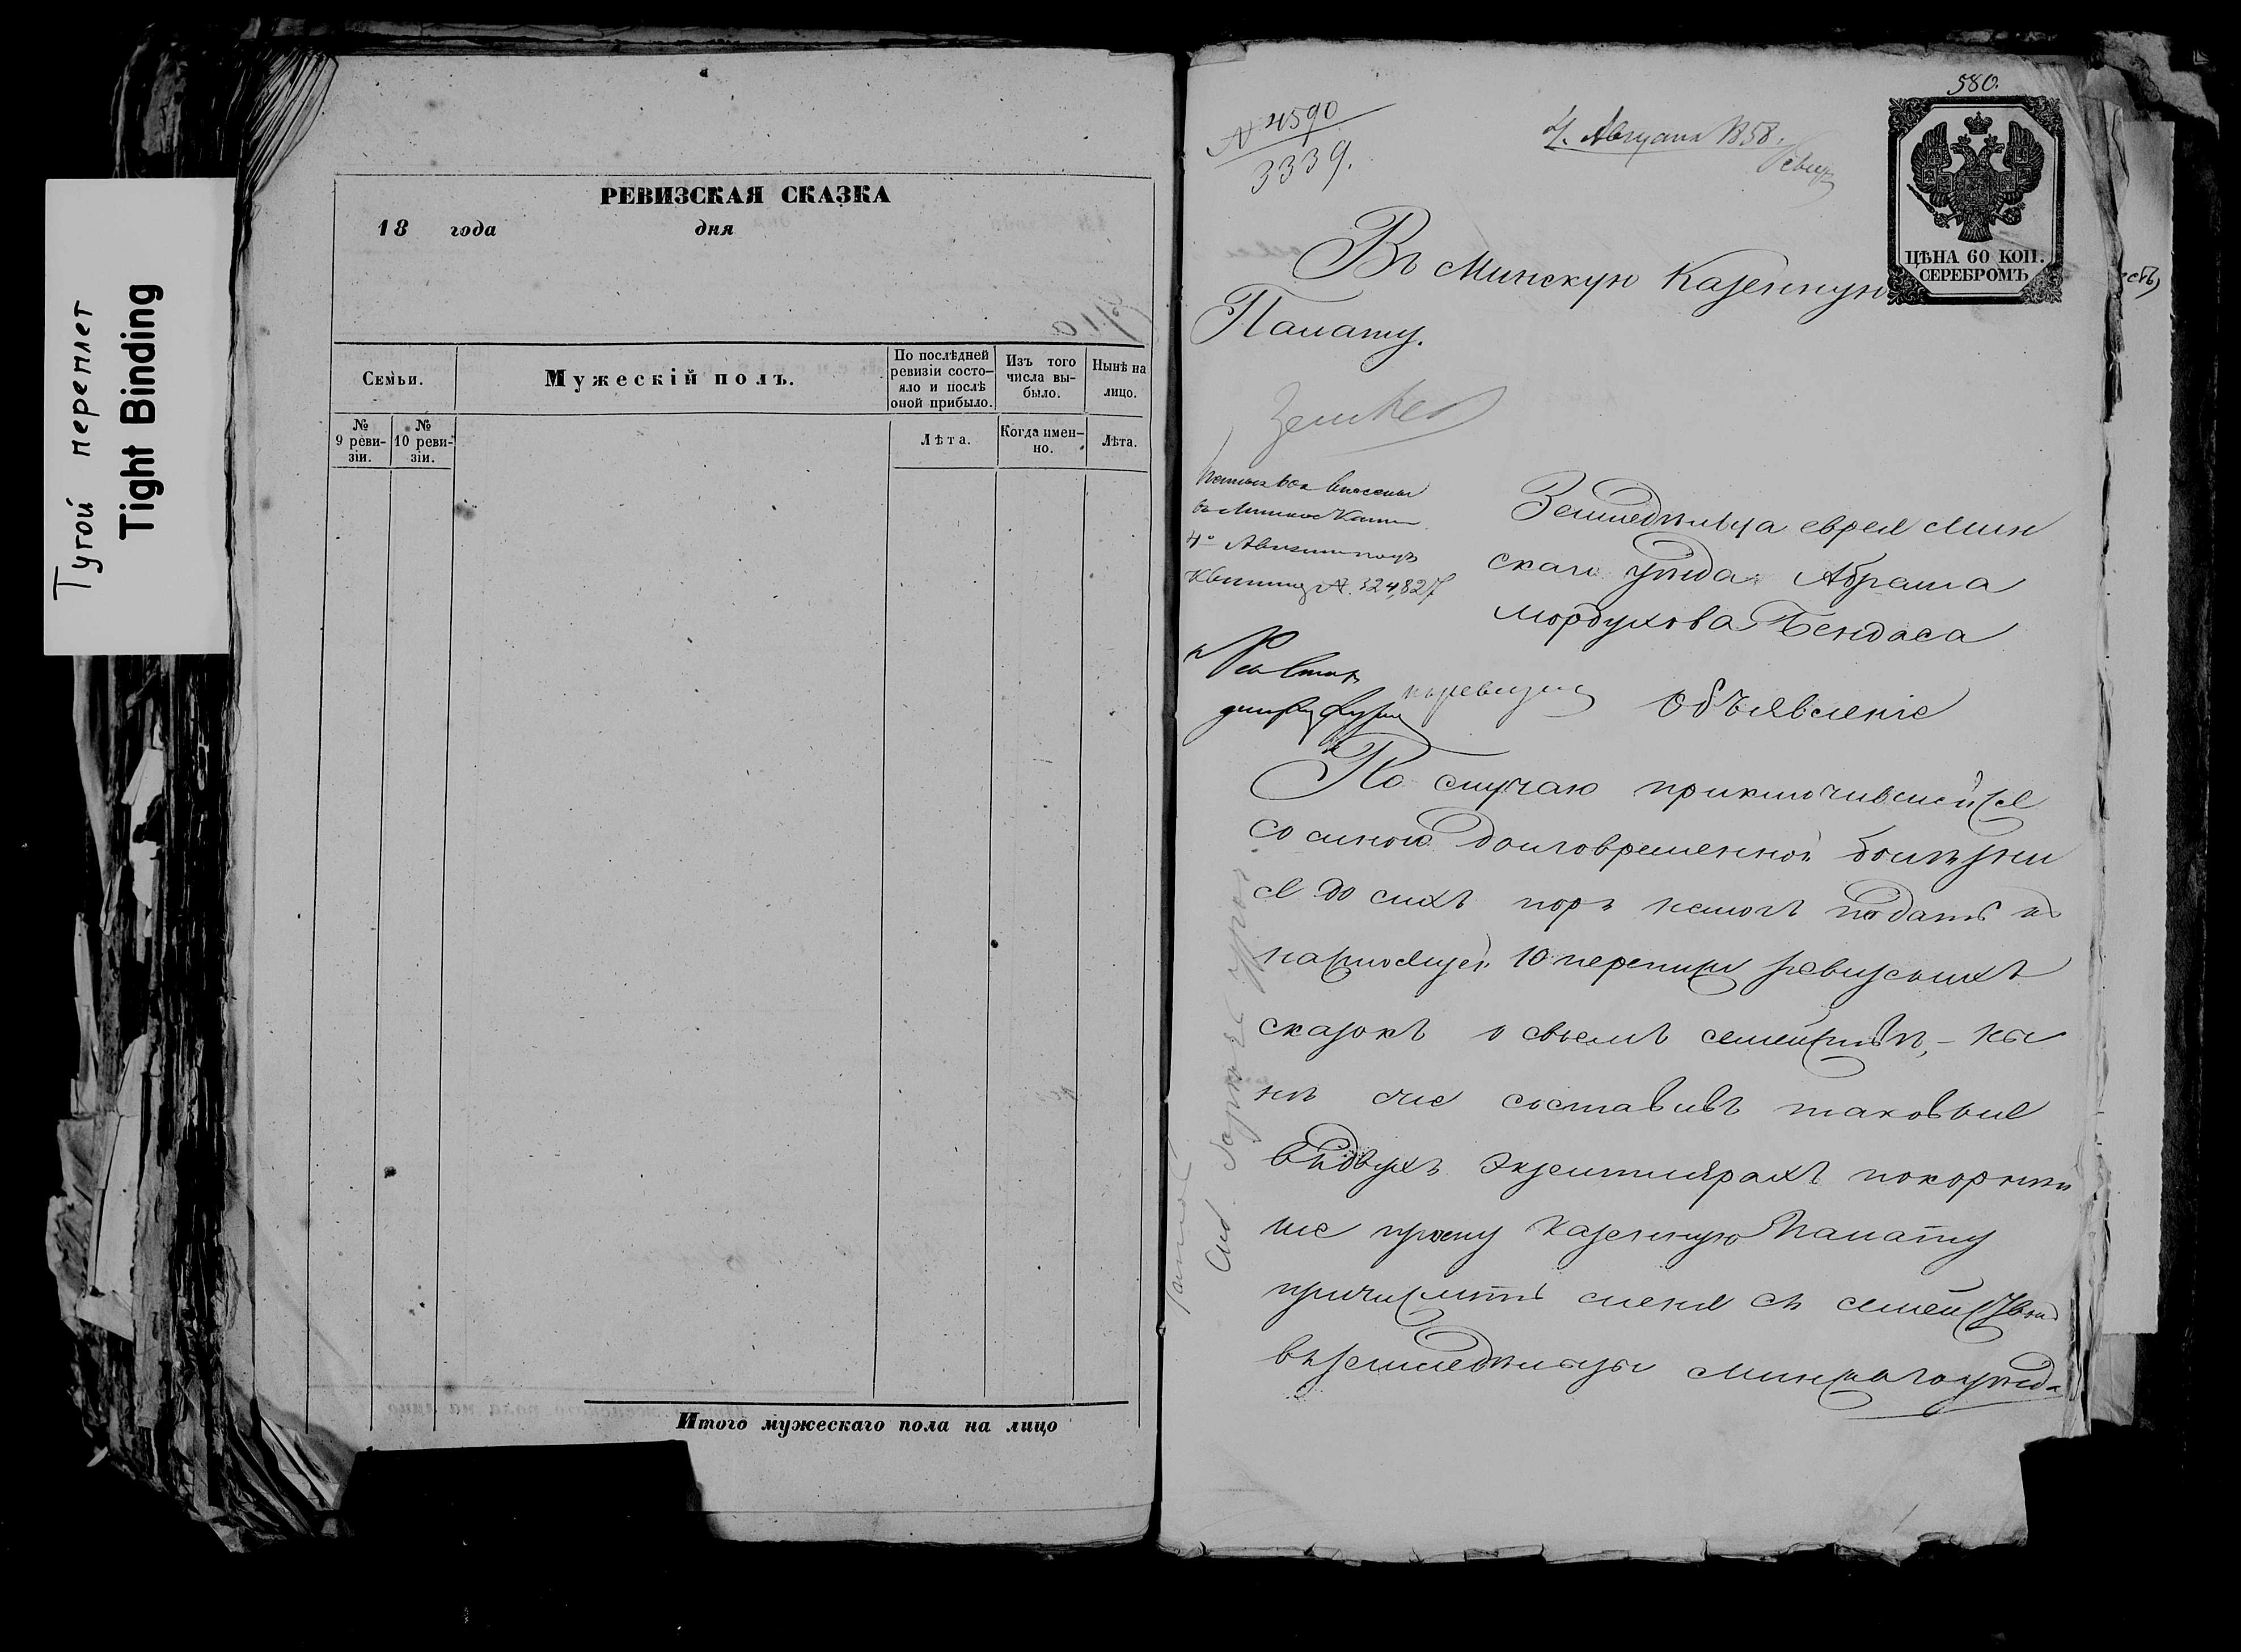 Тугой переплет
Tight Binding
РЕВИЗСКАЯ СКАЗКА
18 года дня
Семьи.
Мужескій полъ.
По послѣдней ревизіи состо-
яло и послѣ
оной прибыло.
Изъ того
числа вы-
было.
Нынѣ на
лицо.
№
9 реви-
зіи.
№
10 реви-
зіи.
Лѣта.
Когда имен-
но.
Лѣта.
Итого мужескаго пола на лицо
580.
№ 4590
3339.
4. Августа 1858.
ЦѢНА 60 КОП.
СЕРЕБРОМЪ
Въ Минскую Казенную
Палату.
Земледѣльца еврея Мин
скаго уѣзда Абрама
Мордухова Бендаса
Объявленіе
По случаю приключившейся
со мною долговременной болѣзни
я до сихъ поръ немогъ подать къ
настоящей 10 переписи ревизскихъ
сказокъ о своемъ семействѣ, – ны
нѣ же составивъ таковые
въ двухъ экземплярахъ покорнѣй
ше прошу Казенную Палату
причислить меня съ семействомъ
въ земледѣльцы Минскаго уѣзда
Квитанц № 324,827